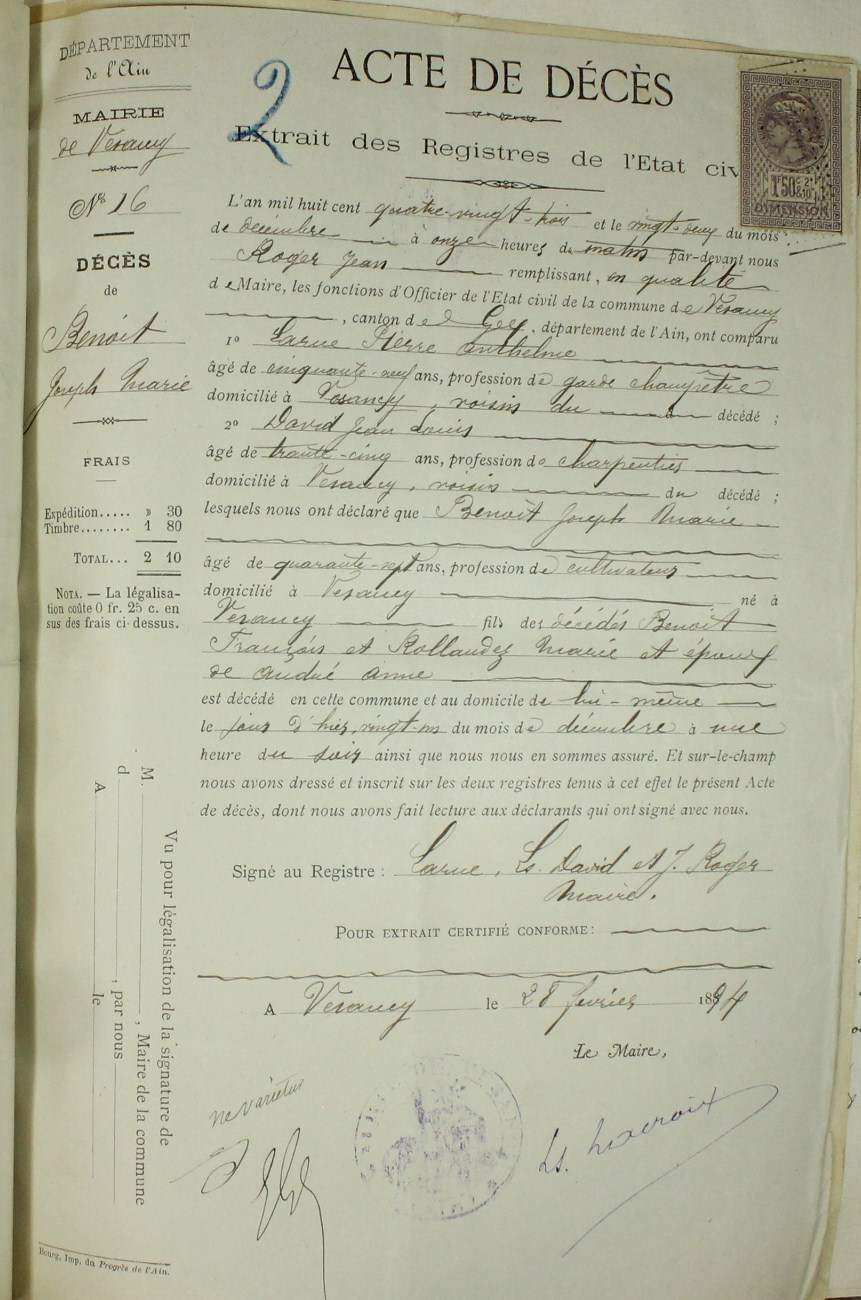 DÉPARTEMENT
de l'Ain
MAIRIE
de Vesancy
N° 16
DÉCÈS
de
Benoit
Joseph Marie
FRAIS
Expédition..... » 30
Timbre........ 1 80
TOTAL... 2 10
NOTA. — La légalisa-
tion coûte 0 fr. 25 c. en
sus des frais ci-dessus.
Vu pour légalisation de la signature de
M. , Maire de la commune
d , par nous
A le
Bourg, Imp. du Progrès de l'Ain.
2
ACTE DE DÉCÈS
Extrait des Registres de l'Etat civ
1F50c 2es &10
DIMENSION
L'an mil huit cent quatre-vingt-trois et le vingt-deux du mois
de décembre à onze heures du matin par-devant nous
Roger Jean remplissant, en qualité
de Maire, les fonctions d'Officier de l'Etat civil de la commune de Vesancy
, canton de Gex, département de l'Ain, ont comparu
1° Larue Pierre Anthelme
âgé de cinquante-neuf ans, profession de garde champêtre
domicilié à Vesancy, voisin du décédé ;
2° David Jean Louis
âgé de trente-cinq ans, profession de charpentier
domicilié à Vesancy, voisin du décédé ;
lesquels nous ont déclaré que Benoit Joseph Marie
âgé de quarante-sept ans, profession de cultivateur
domicilié à Vesancy né à
Vesancy fils des décédés Benoit
François et Rollandez Marie et époux
de André Anne
est décédé en cette commune et au domicile de lui-même
le jour d'hier, vingt-un du mois de décembre à une
heure du soir ainsi que nous nous en sommes assuré. Et sur-le-champ
nous avons dressé et inscrit sur les deux registres tenus à cet effet le présent Acte
de décès, dont nous avons fait lecture aux déclarants qui ont signé avec nous.
Signé au Registre : Larue, Ls. David et J. Roger
Maire.
POUR EXTRAIT CERTIFIÉ CONFORME :
A Vesancy le 28 février 1894
Le Maire,
ne varietur
Ls. Lacroix